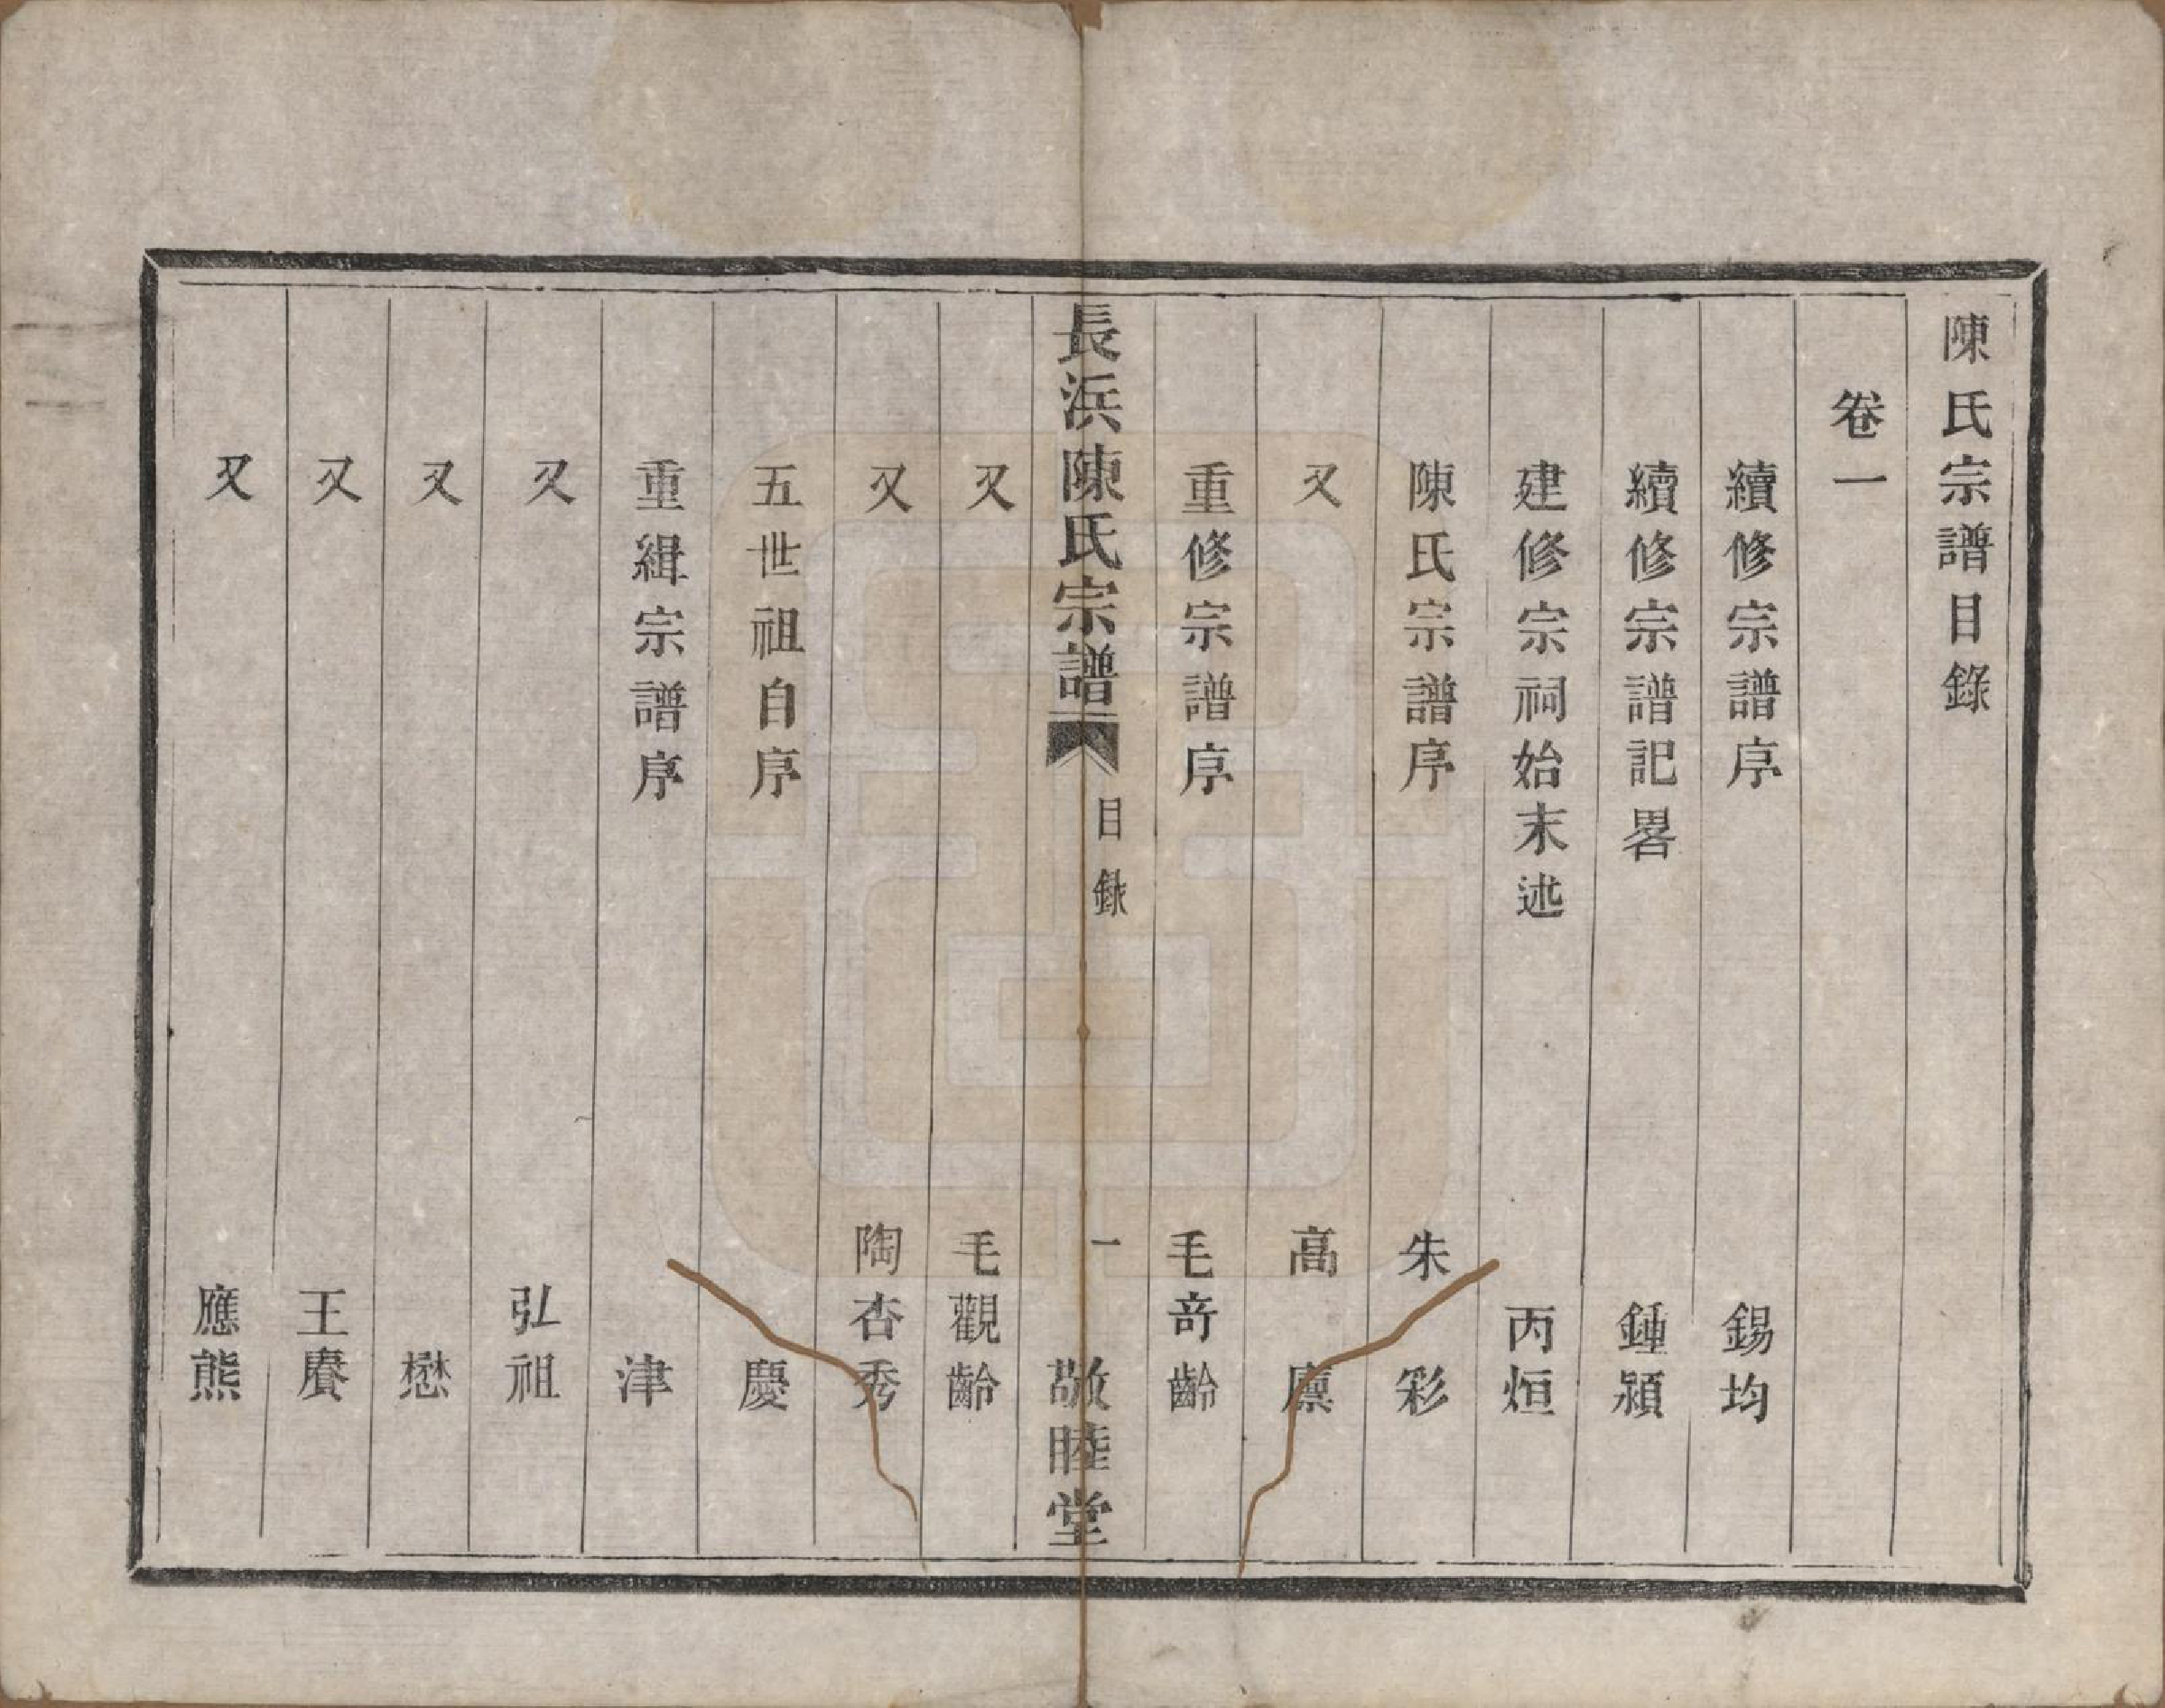 陳氏宗譜目錄
卷一
續修宗譜序 錫均
續修宗譜記畧 鍾潁
建修宗祠始末述 丙烜
陳氏宗譜序 朱彩
又 高廪
重修宗譜序 毛奇齡
長浜陳氏宗譜 目錄 一 敬睦堂
又 毛觀齡
又 陶杏秀
五世祖自序 慶
重緝宗譜序 津
又 弘祖
又 懋
又 王賡
又 應熊